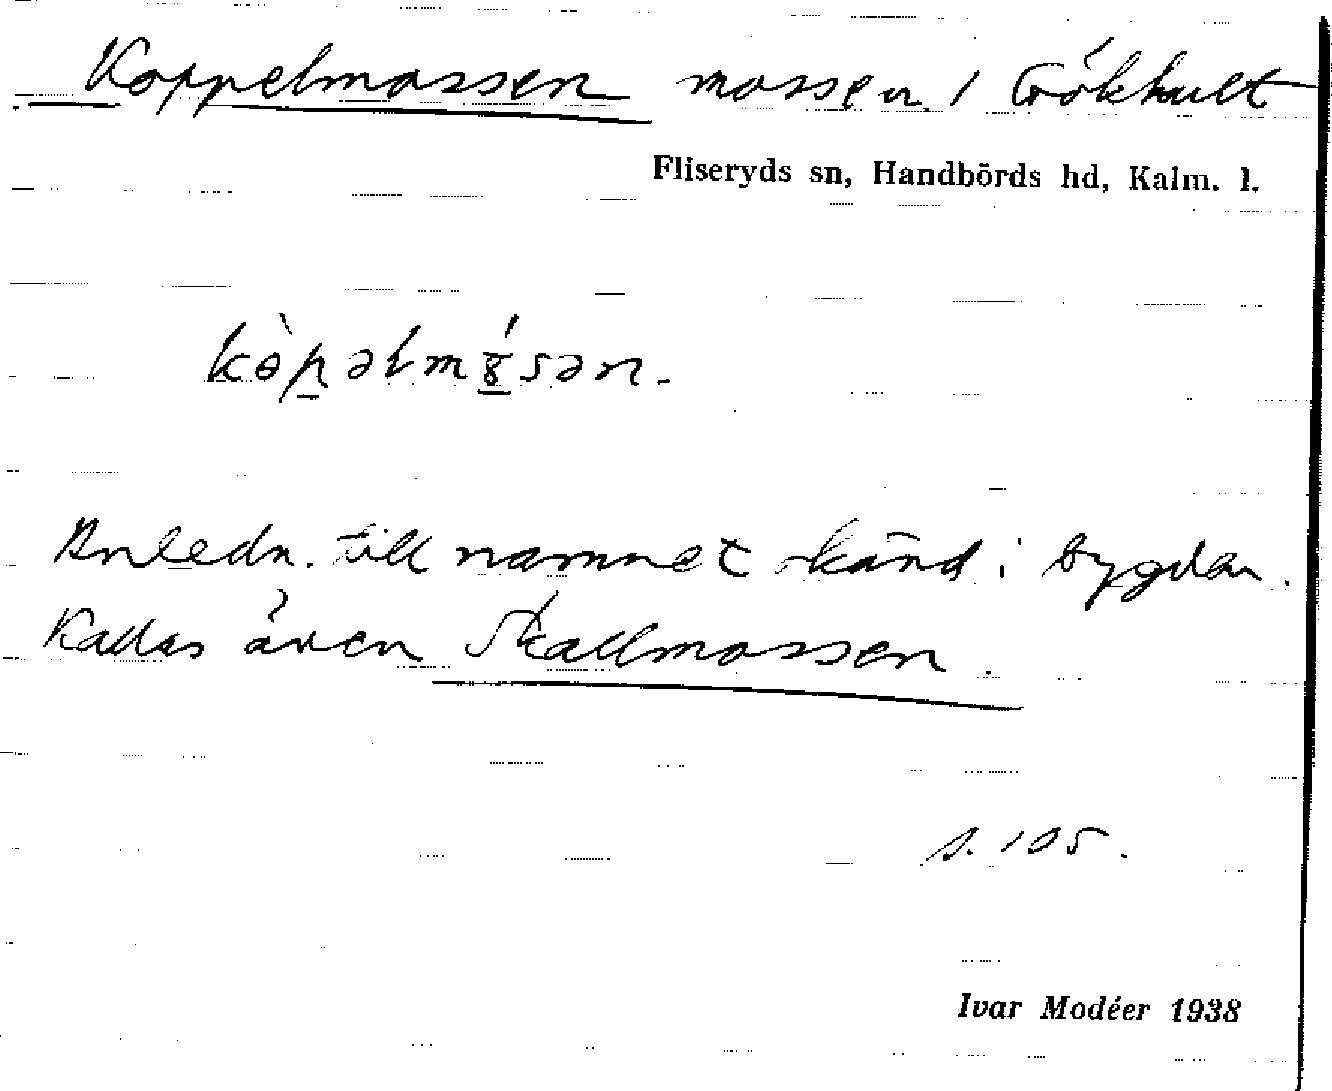 Koppelmossen mosse / Gökhult
Fliseryds sn, Handbörds hd, Kalm. l.
Anledn. till namnet okänd i bygden.
Kallas även Skallmossen.
s. 105.
Ivar Modéer 1938